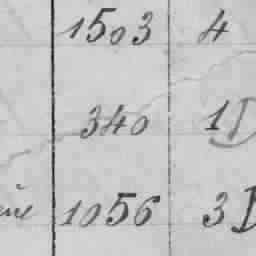 1503 4
340 1D
1056 3D